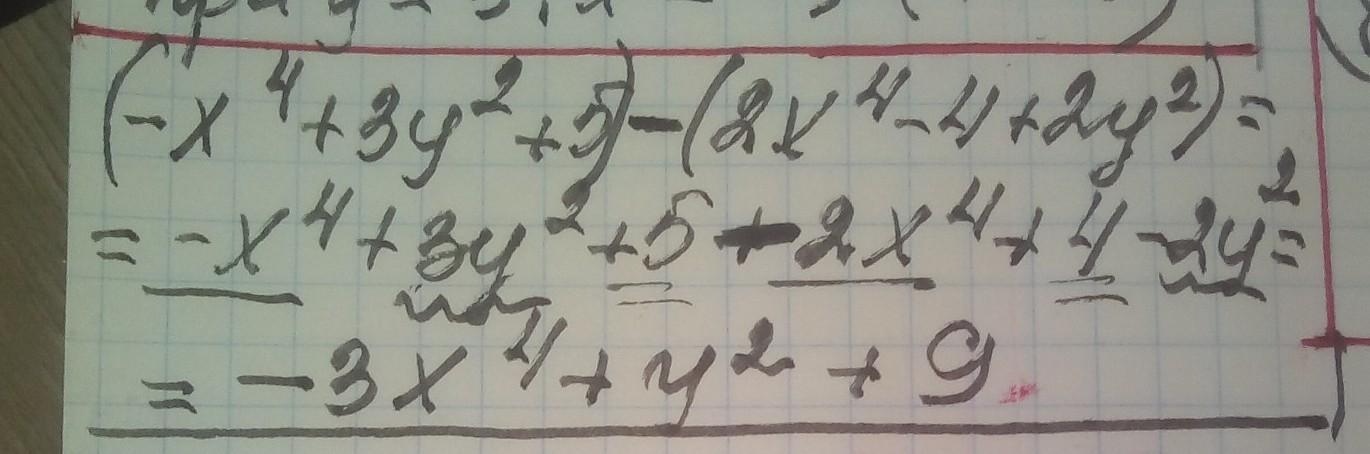 (-x⁴+3y²+5)-(2x⁴-4+2y²)=
=-x⁴+3y²+5-2x⁴+4-2y²=
=-3x⁴+y²+9